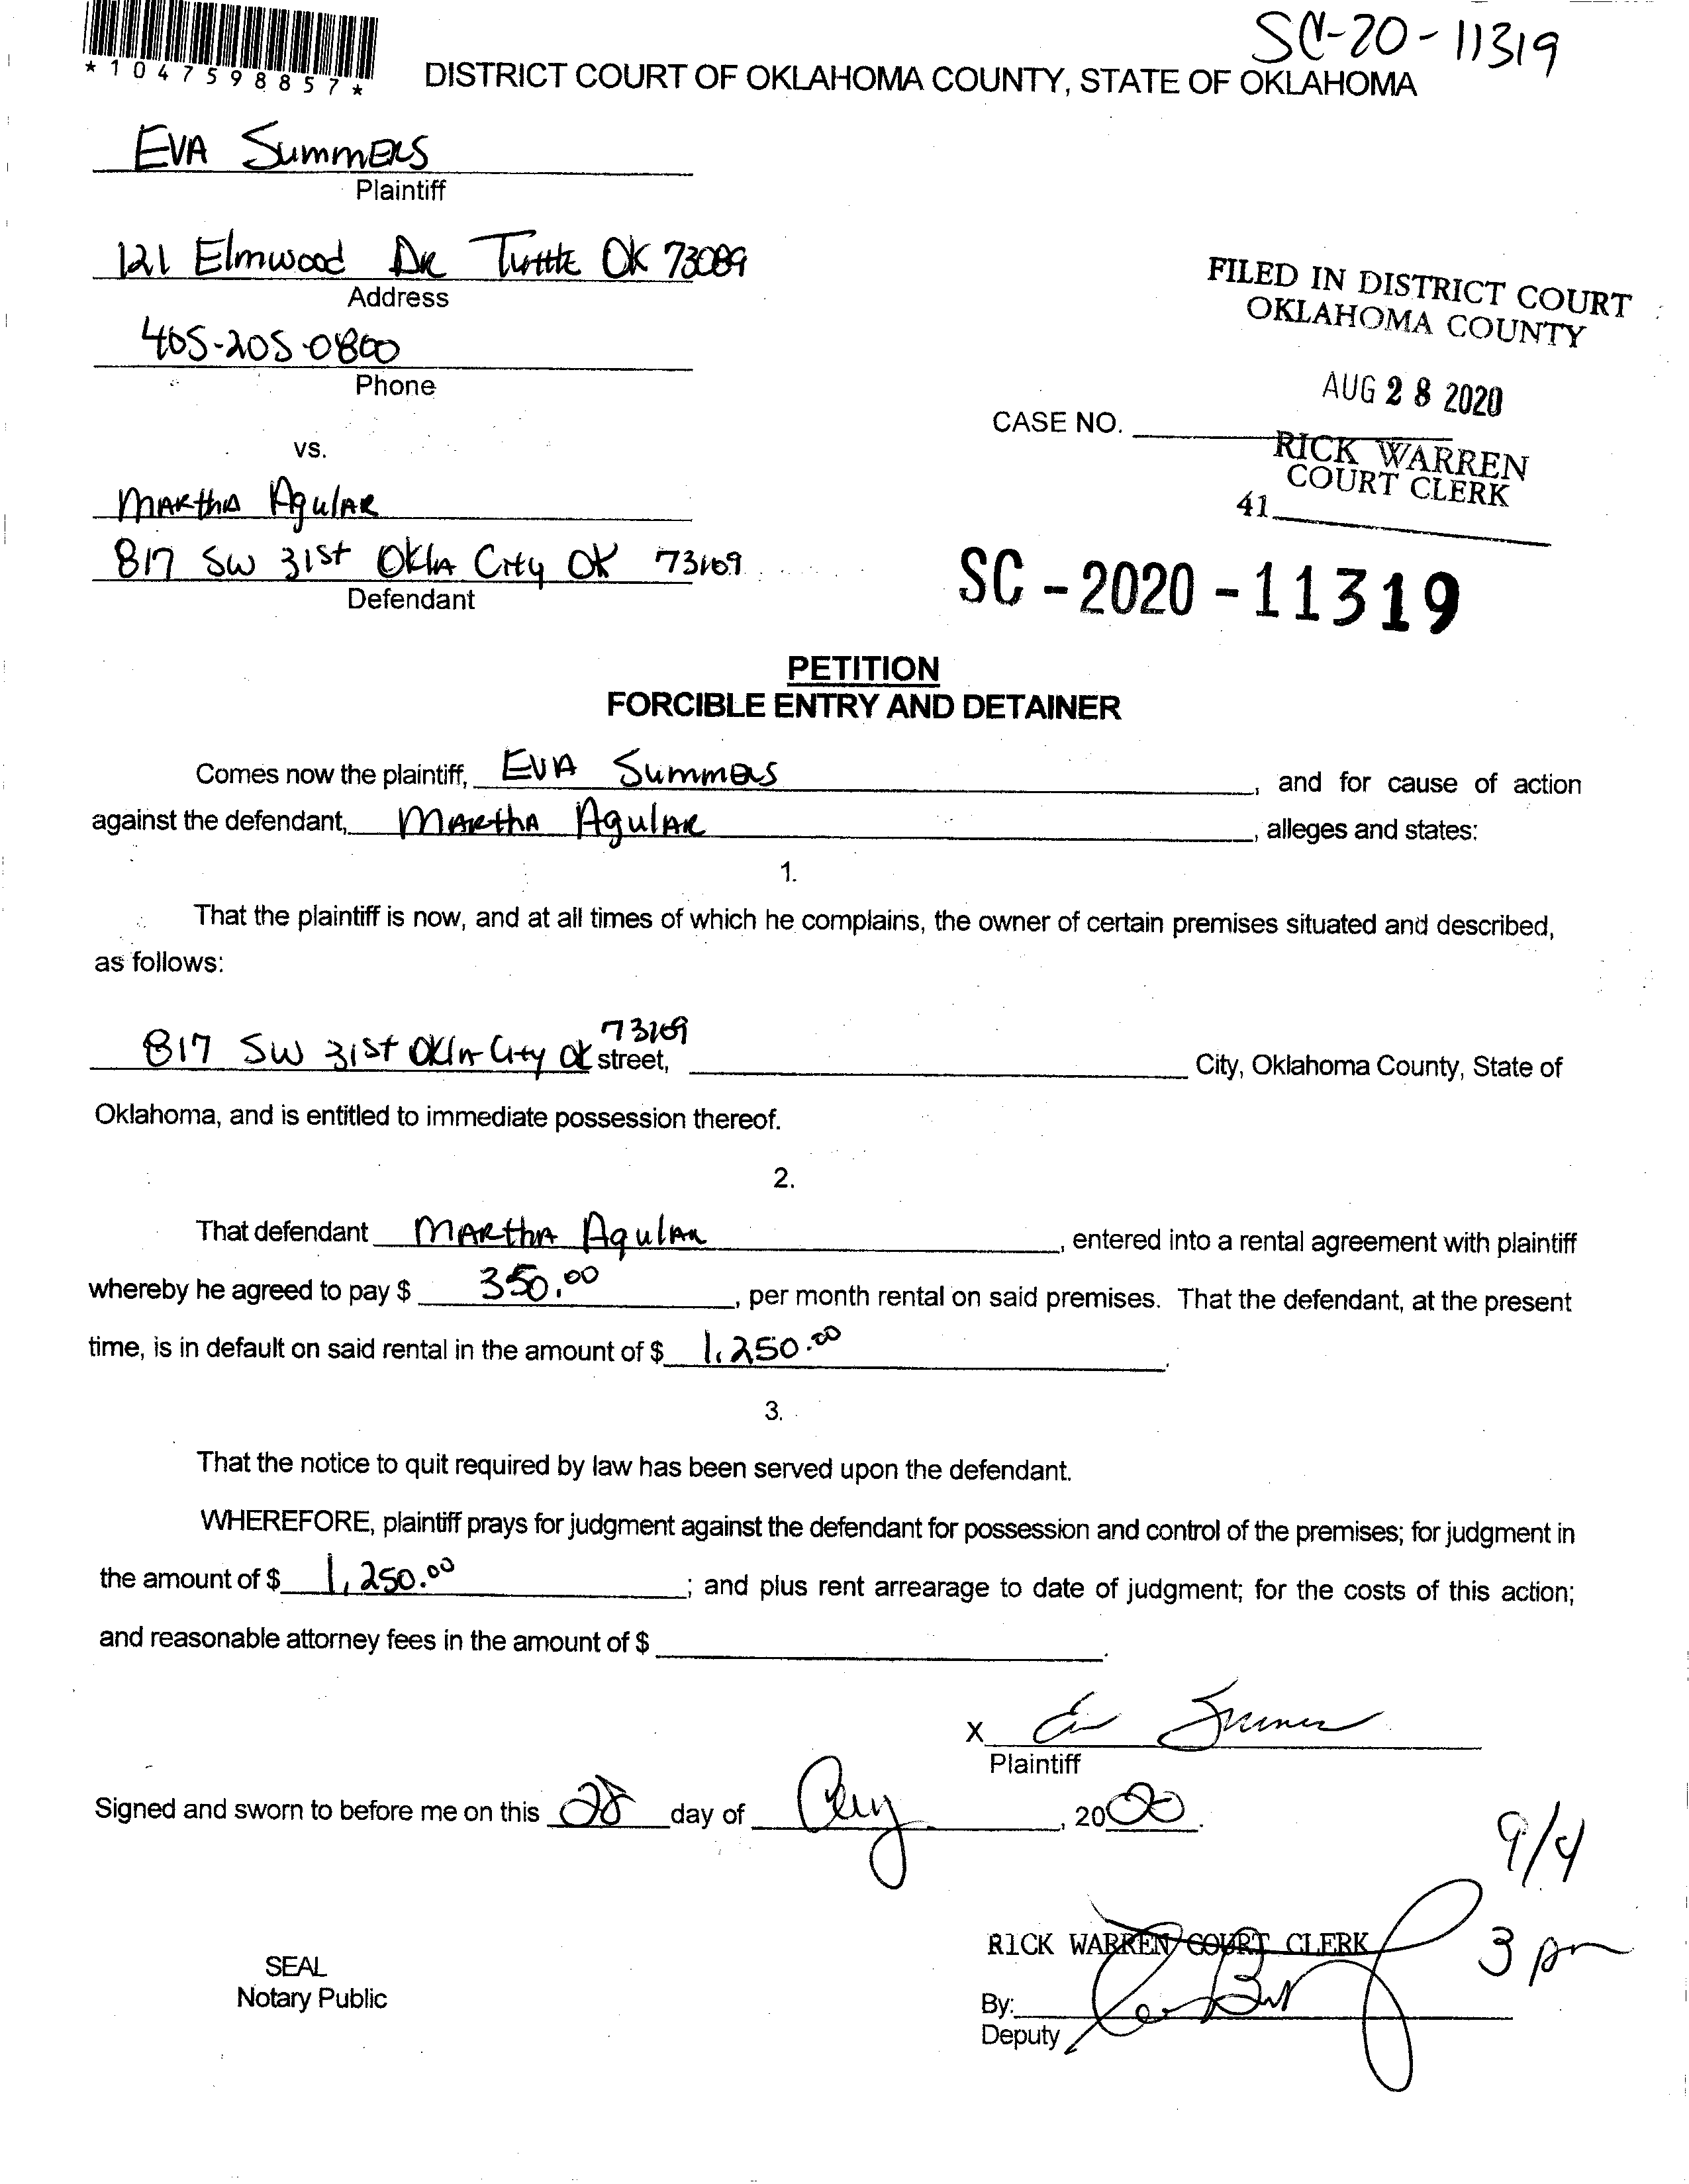 SC-20-11319
*1047598857*
DISTRICT COURT OF OKLAHOMA COUNTY, STATE OF OKLAHOMA
EVA Summers
Plaintiff
121 Elmwood DR Tuttle OK 73089
Address
405-205-0800
Phone
FILED IN DISTRICT COURT
OKLAHOMA COUNTY
AUG 28 2020
CASE NO.
RICK WARREN
COURT CLERK
41
vs.
MARthA AgulAR
817 SW 31st OklA City OK 73109
Defendant
SC-2020-11319
PETITION
FORCIBLE ENTRY AND DETAINER
Comes now the plaintiff, EVA Summers, and for cause of action
against the defendant, MARthA AgulAR, alleges and states:
1.
That the plaintiff is now, and at all times of which he complains, the owner of certain premises situated and described,
as follows:
817 SW 31st OklA City OK 73109 street, City, Oklahoma County, State of
Oklahoma, and is entitled to immediate possession thereof.
2.
That defendant MARthA AgulAR, entered into a rental agreement with plaintiff
whereby he agreed to pay $ 350.00, per month rental on said premises. That the defendant, at the present
time, is in default on said rental in the amount of $ 1,250.00.
3.
That the notice to quit required by law has been served upon the defendant.
WHEREFORE, plaintiff prays for judgment against the defendant for possession and control of the premises; for judgment in
the amount of $ 1,250.00; and plus rent arrearage to date of judgment; for the costs of this action;
and reasonable attorney fees in the amount of $ .
X Eva Summers
Plaintiff
Signed and sworn to before me on this 28 day of Aug, 2020.
9/4
3 pm
RICK WARREN COURT CLERK
SEAL
Notary Public
By:
Deputy